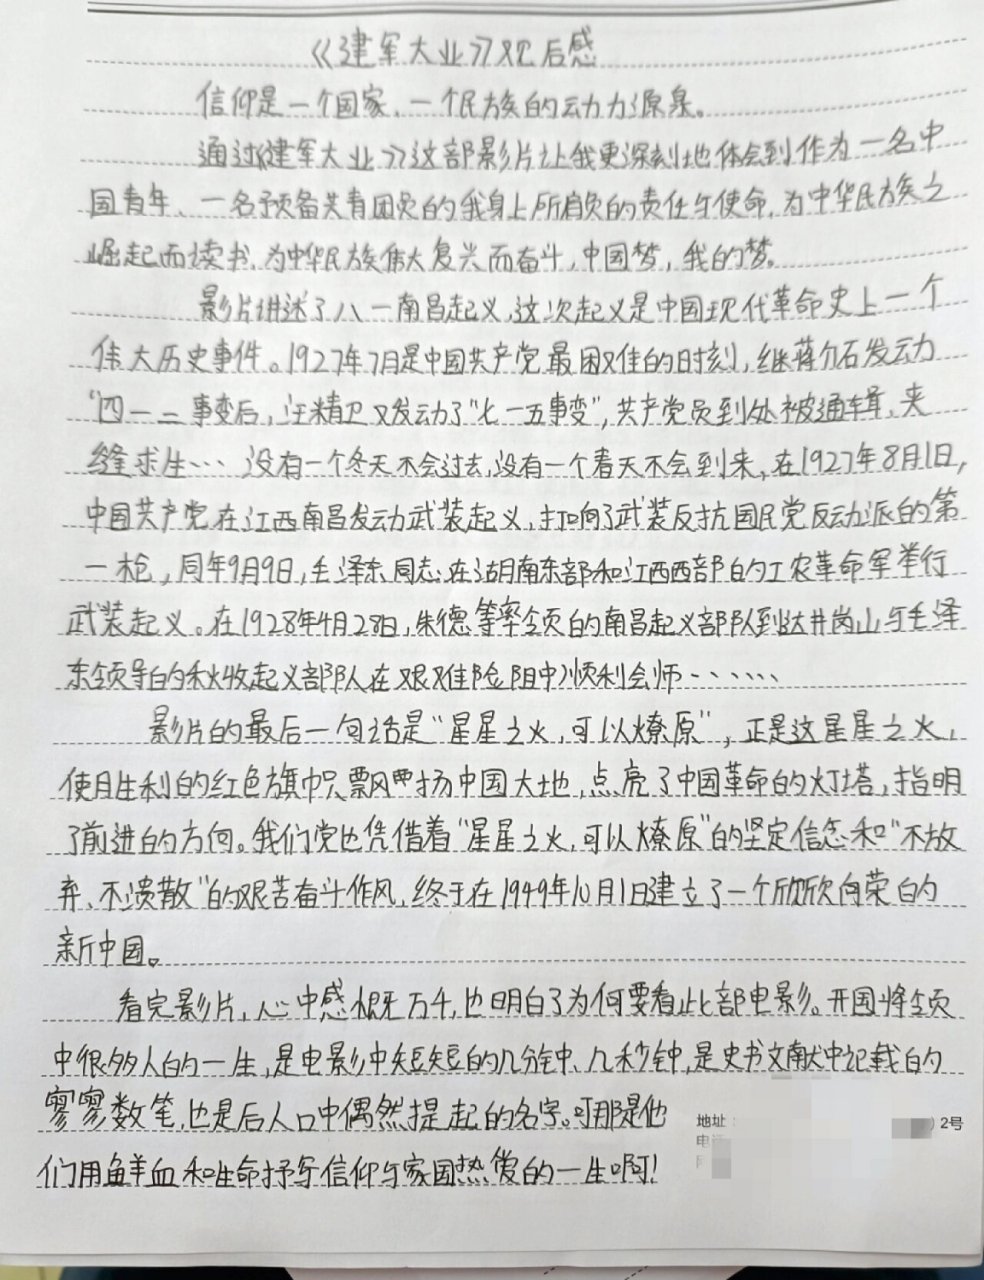 《建军大业》观后感
信仰是一个国家、一个民族的动力源泉。
通过《建军大业》这部影片让我更深刻地体会到作为一名中
国青年、一名预备共青团员的我身上所肩负的责任与使命,为中华民族之
崛起而读书,为中华民族伟大复兴而奋斗,中国梦,我的梦。
影片讲述了八一南昌起义,这次起义是中国现代革命史上一个
伟大历史事件。1927年7月是中国共产党最困难的时刻,继蒋介石发动
“四一二事变后,汪精卫又发动了“七一五事变”,共产党员到处被通缉,夹
缝求生… 没有一个冬天不会过去,没有一个春天不会到来,在1927年8月1日,
中国共产党在江西南昌发动武装起义,打响了武装反抗国民党反动派的第
一枪,同年9月9日,毛泽东同志在湖南东部和江西西部的工农革命军举行
武装起义。在1928年4月28日,朱德等率领的南昌起义部队到达井岗山与毛泽
东领导的秋收起义部队在艰难险阻中顺利会师……
影片的最后一句话是“星星之火,可以燎原”,正是这星星之火,
使胜利的红色旗帜飘扬中国大地,点亮了中国革命的灯塔,指明
了前进的方向。我们党也凭借着“星星之火,可以燎原”的坚定信念和“不放
弃、不溃散”的艰苦奋斗作风,终于在1949年10月1日建立了一个欣欣向荣的
新中国。
看完影片,心中感慨万千,也明白了为何要看此部电影。开国将领
中很多人的一生,是电影中短短的几分钟、几秒钟,是史书文献中记载的
寥寥数笔,也是后人口中偶然提起的名字。可那是他
们用鲜血和生命抒写信仰与家国热爱的一生啊!
地址
2号